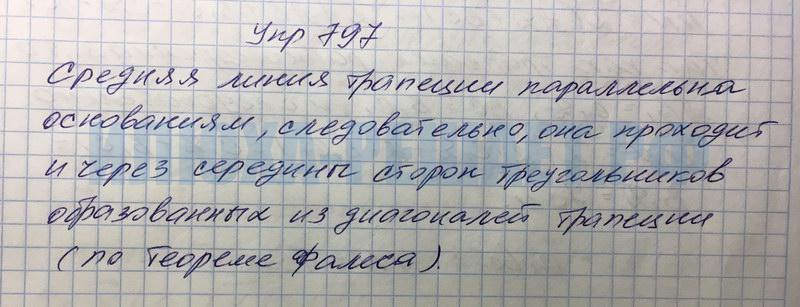 Упр 797
Средняя линия трапеции параллельна
основаниям, следовательно, она проходит
и через середины сторон треугольников
образованных из диагоналей трапеции
(по теореме Фалеса).